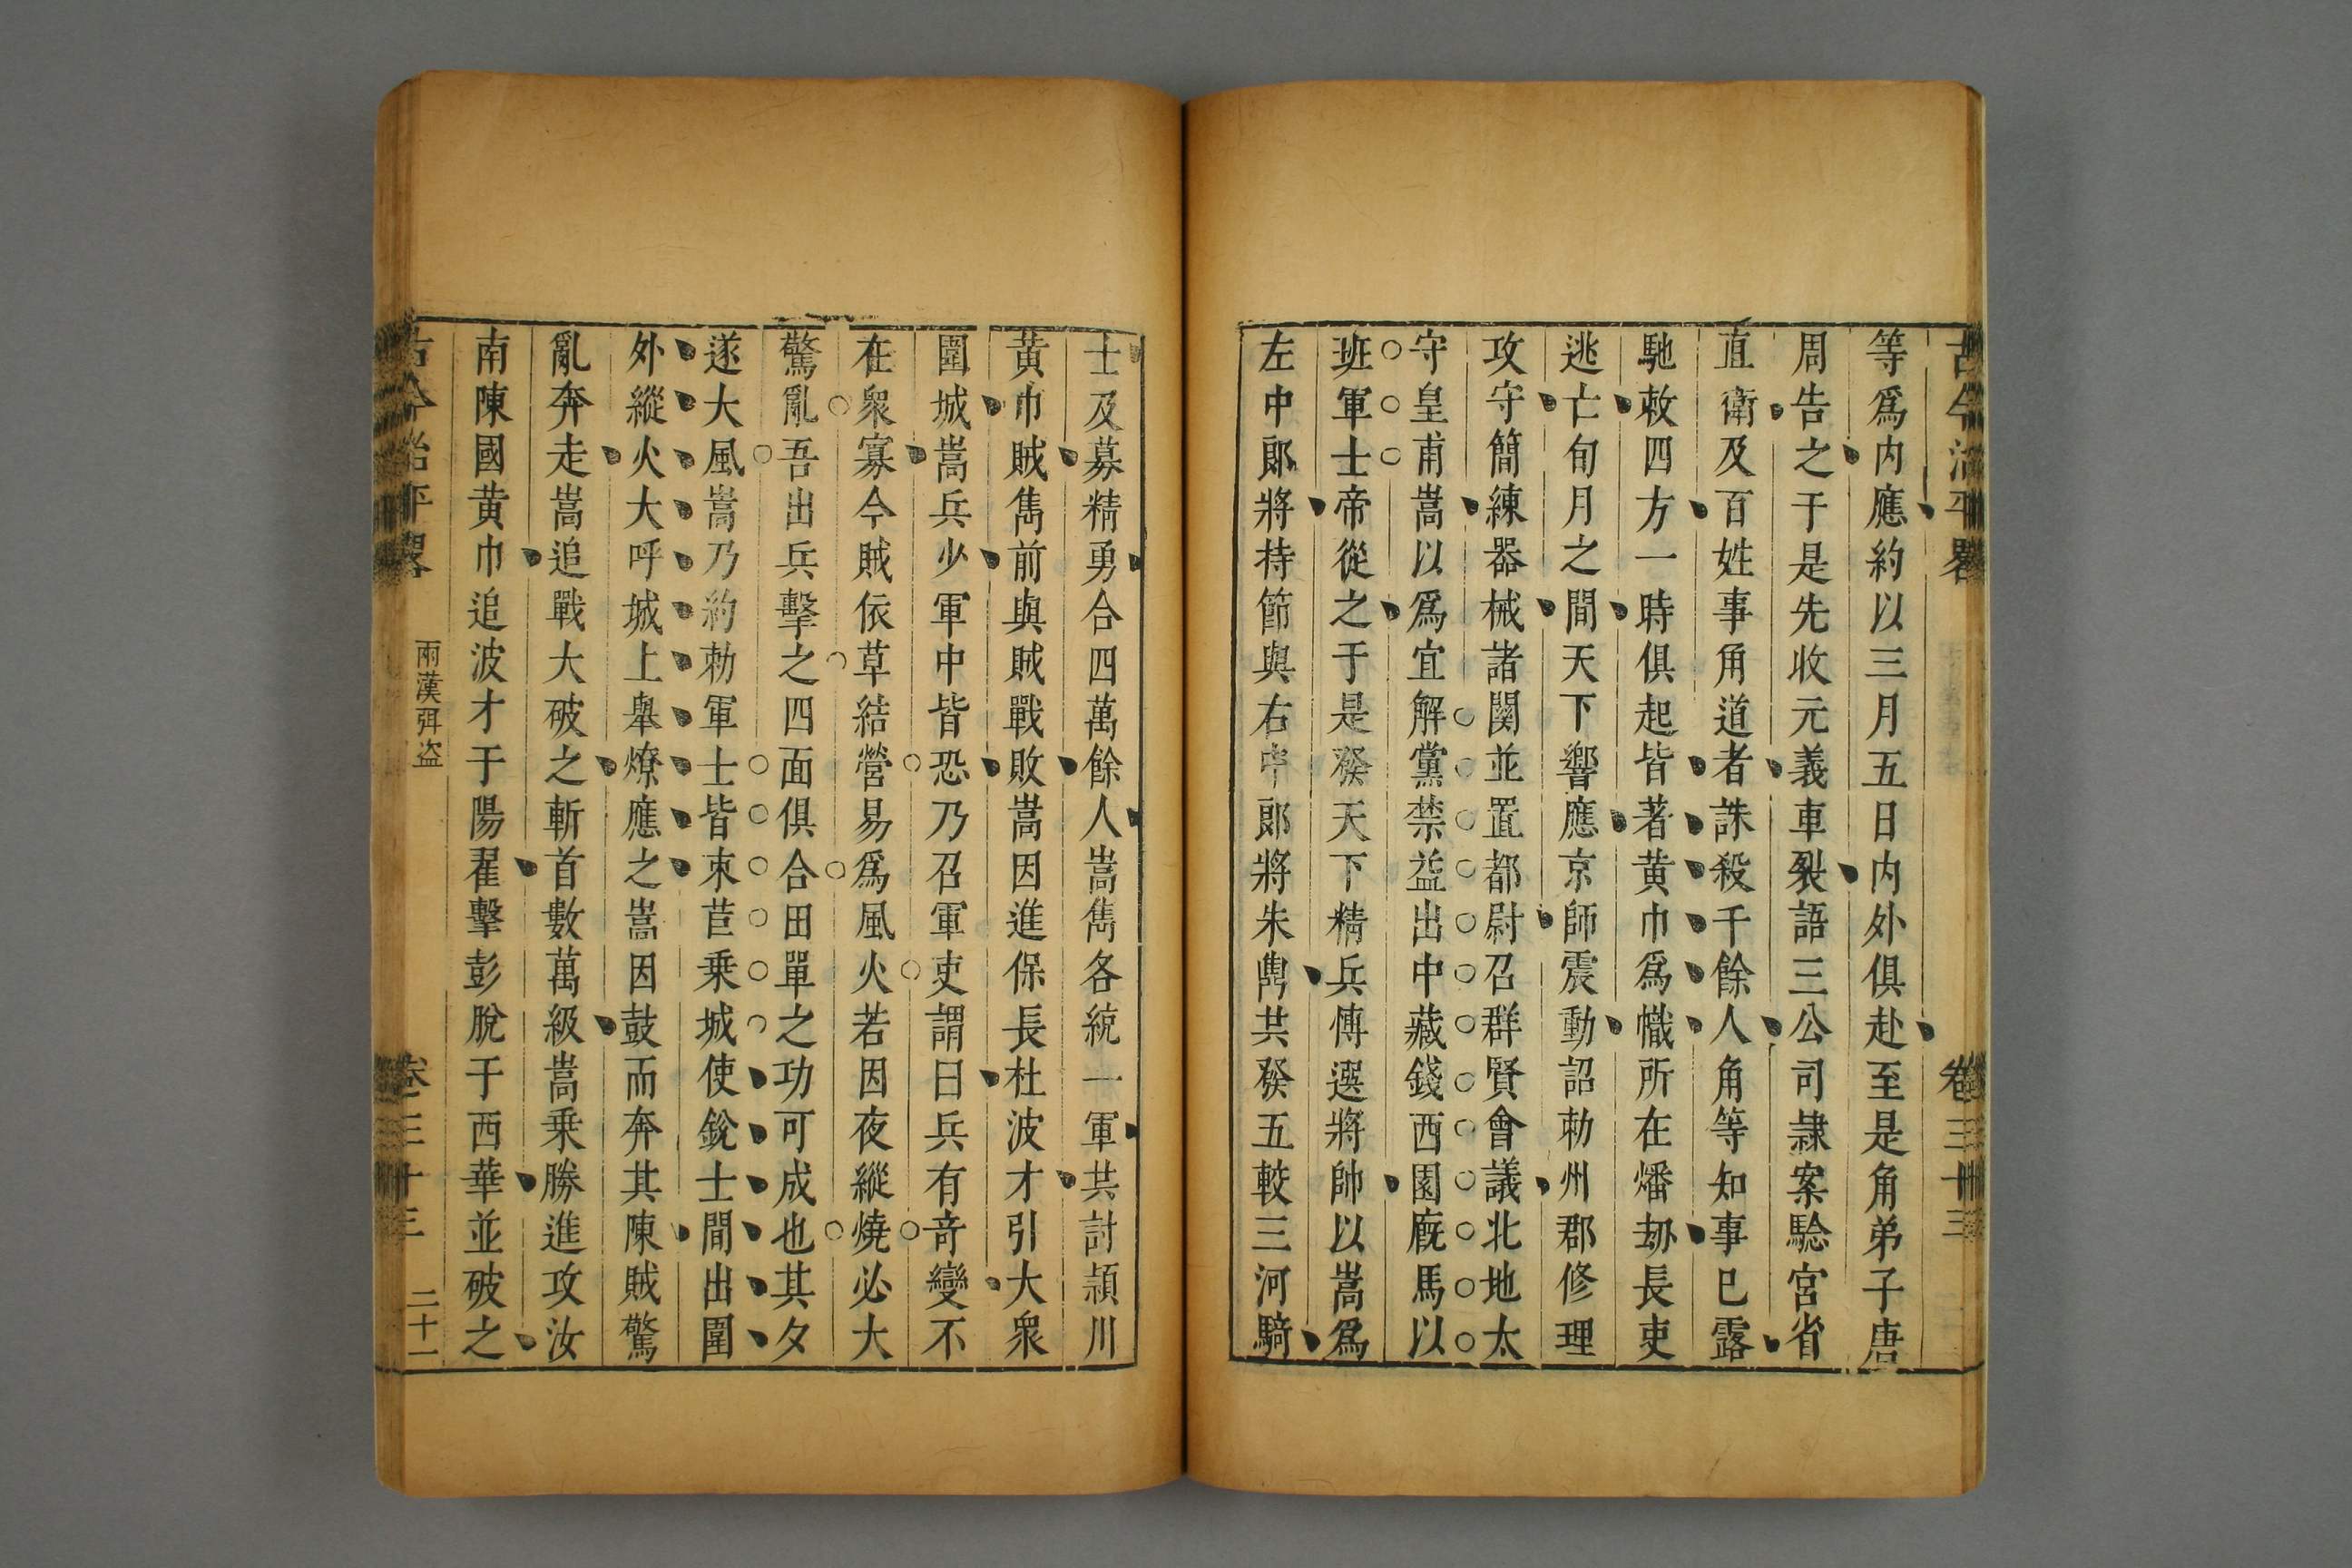 古今治平畧
卷三十三
等爲内應約以三月五日内外俱赴至是角弟子唐
周告之于是先收元義車裂語三公司隷案騐宮省
直衛及百姓事角道者誅殺千餘人角等知事已露
馳敕四方一時俱起皆著黄巾爲幟所在燔刼長吏
逃亡旬月之間天下響應京師震動詔勑州郡修理
攻守簡練器械諸關並置都尉召群賢會議北地太
守皇甫嵩以爲宜解黨禁益出中藏錢西園廐馬以
班軍士帝從之于是發天下精兵傅選將帥以嵩爲
左中郎將持節與右中郎將朱儁共發五較三河騎
士及募精勇合四萬餘人嵩儁各統一軍共討潁川
黄巾賊儁前與賊戰敗嵩因進保長杜波才引大衆
圍城嵩兵少軍中皆恐乃召軍吏謂曰兵有竒變不
在衆寡今賊依草結營易爲風火若因夜縱燒必大
驚亂吾出兵擊之四面俱合田單之功可成也其夕
遂大風嵩乃約勑軍士皆束苣乗城使銳士間出圍
外縱火大呼城上舉燎應之嵩因鼓而奔其陳賊驚
亂奔走嵩追戰大破之斬首數萬級嵩乗勝進攻汝
南陳國黄巾追波才于陽翟擊彭脫于西華並破之
古今治平畧
兩漢弭盗
卷三十三
二十一